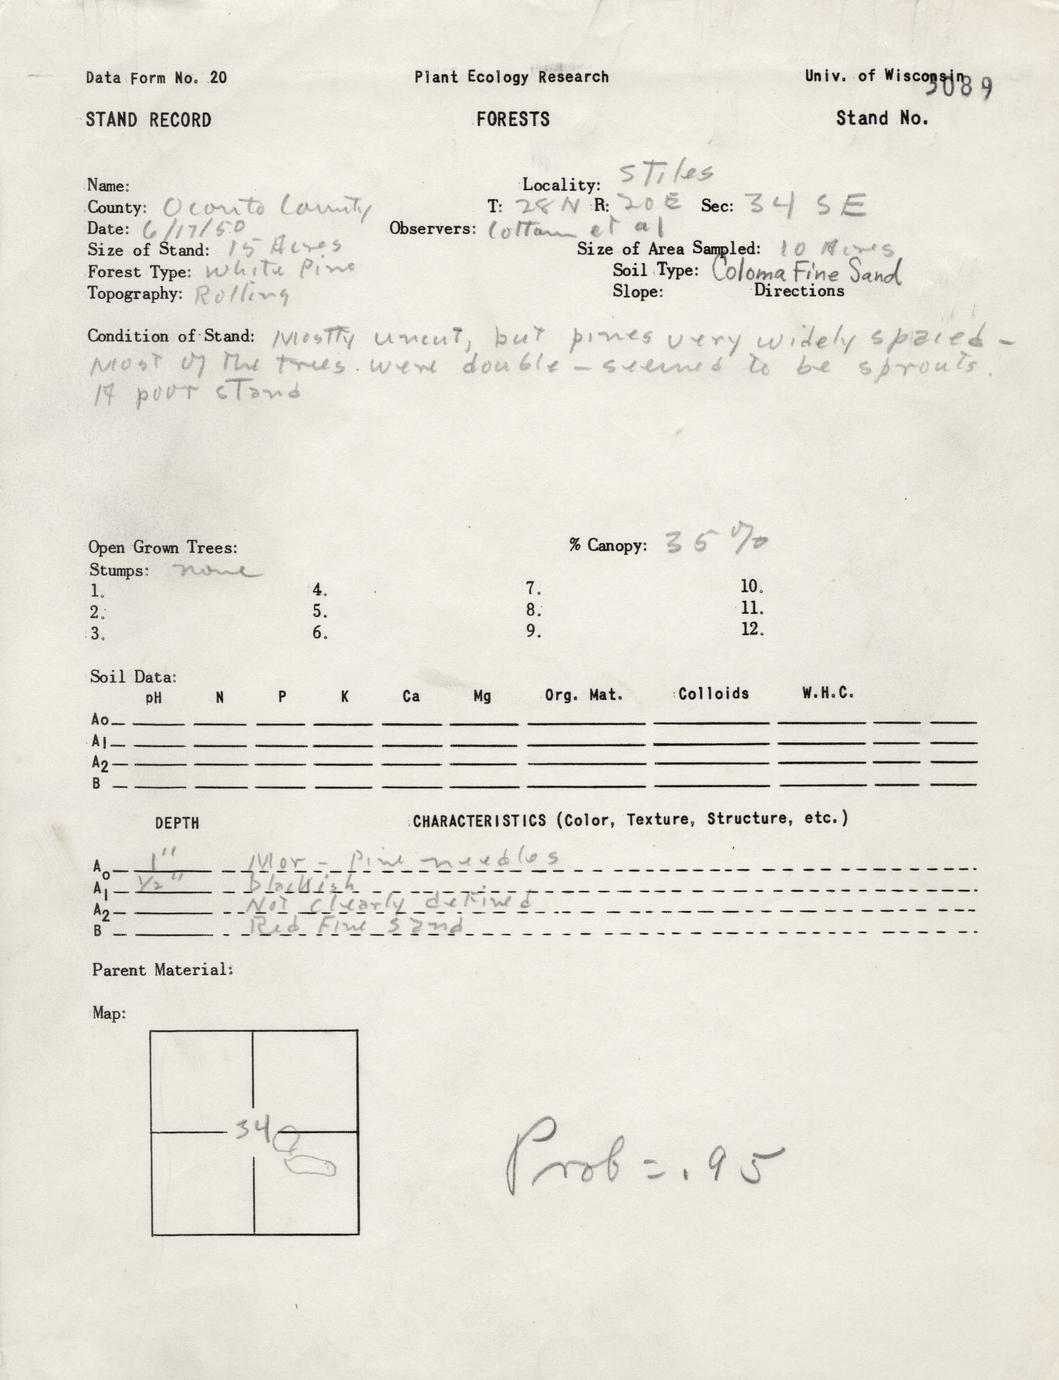 Data Form No. 20 Plant Ecology Research Univ. of Wisconsin
3089
STAND RECORD FORESTS Stand No.
Name: Locality: Stiles
County: Oconto County T: 28N R: 20E Sec: 34 SE
Date: 6/17/50 Observers: Cottam et al
Size of Stand: 15 Acres Size of Area Sampled: 10 Acres
Forest Type: White Pine Soil Type: Coloma Fine Sand
Topography: Rolling Slope: Directions
Condition of Stand: Mostly uncut, but pines very widely spaced -
Most of the trees were double - seemed to be sprouts.
A poor stand
Open Grown Trees: % Canopy: 35%
Stumps: none
1. 4. 7. 10.
2. 5. 8. 11.
3. 6. 9. 12.
Soil Data:
pH N P K Ca Mg Org. Mat. Colloids W.H.C.
Ao
A1
A2
B
DEPTH CHARACTERISTICS (Color, Texture, Structure, etc.)
Ao 1" Mor - Pine needles
A1 1/2" Blackish
A2 Not clearly defined
B Red Fine sand
Parent Material:
Map:
34
Prob = .95